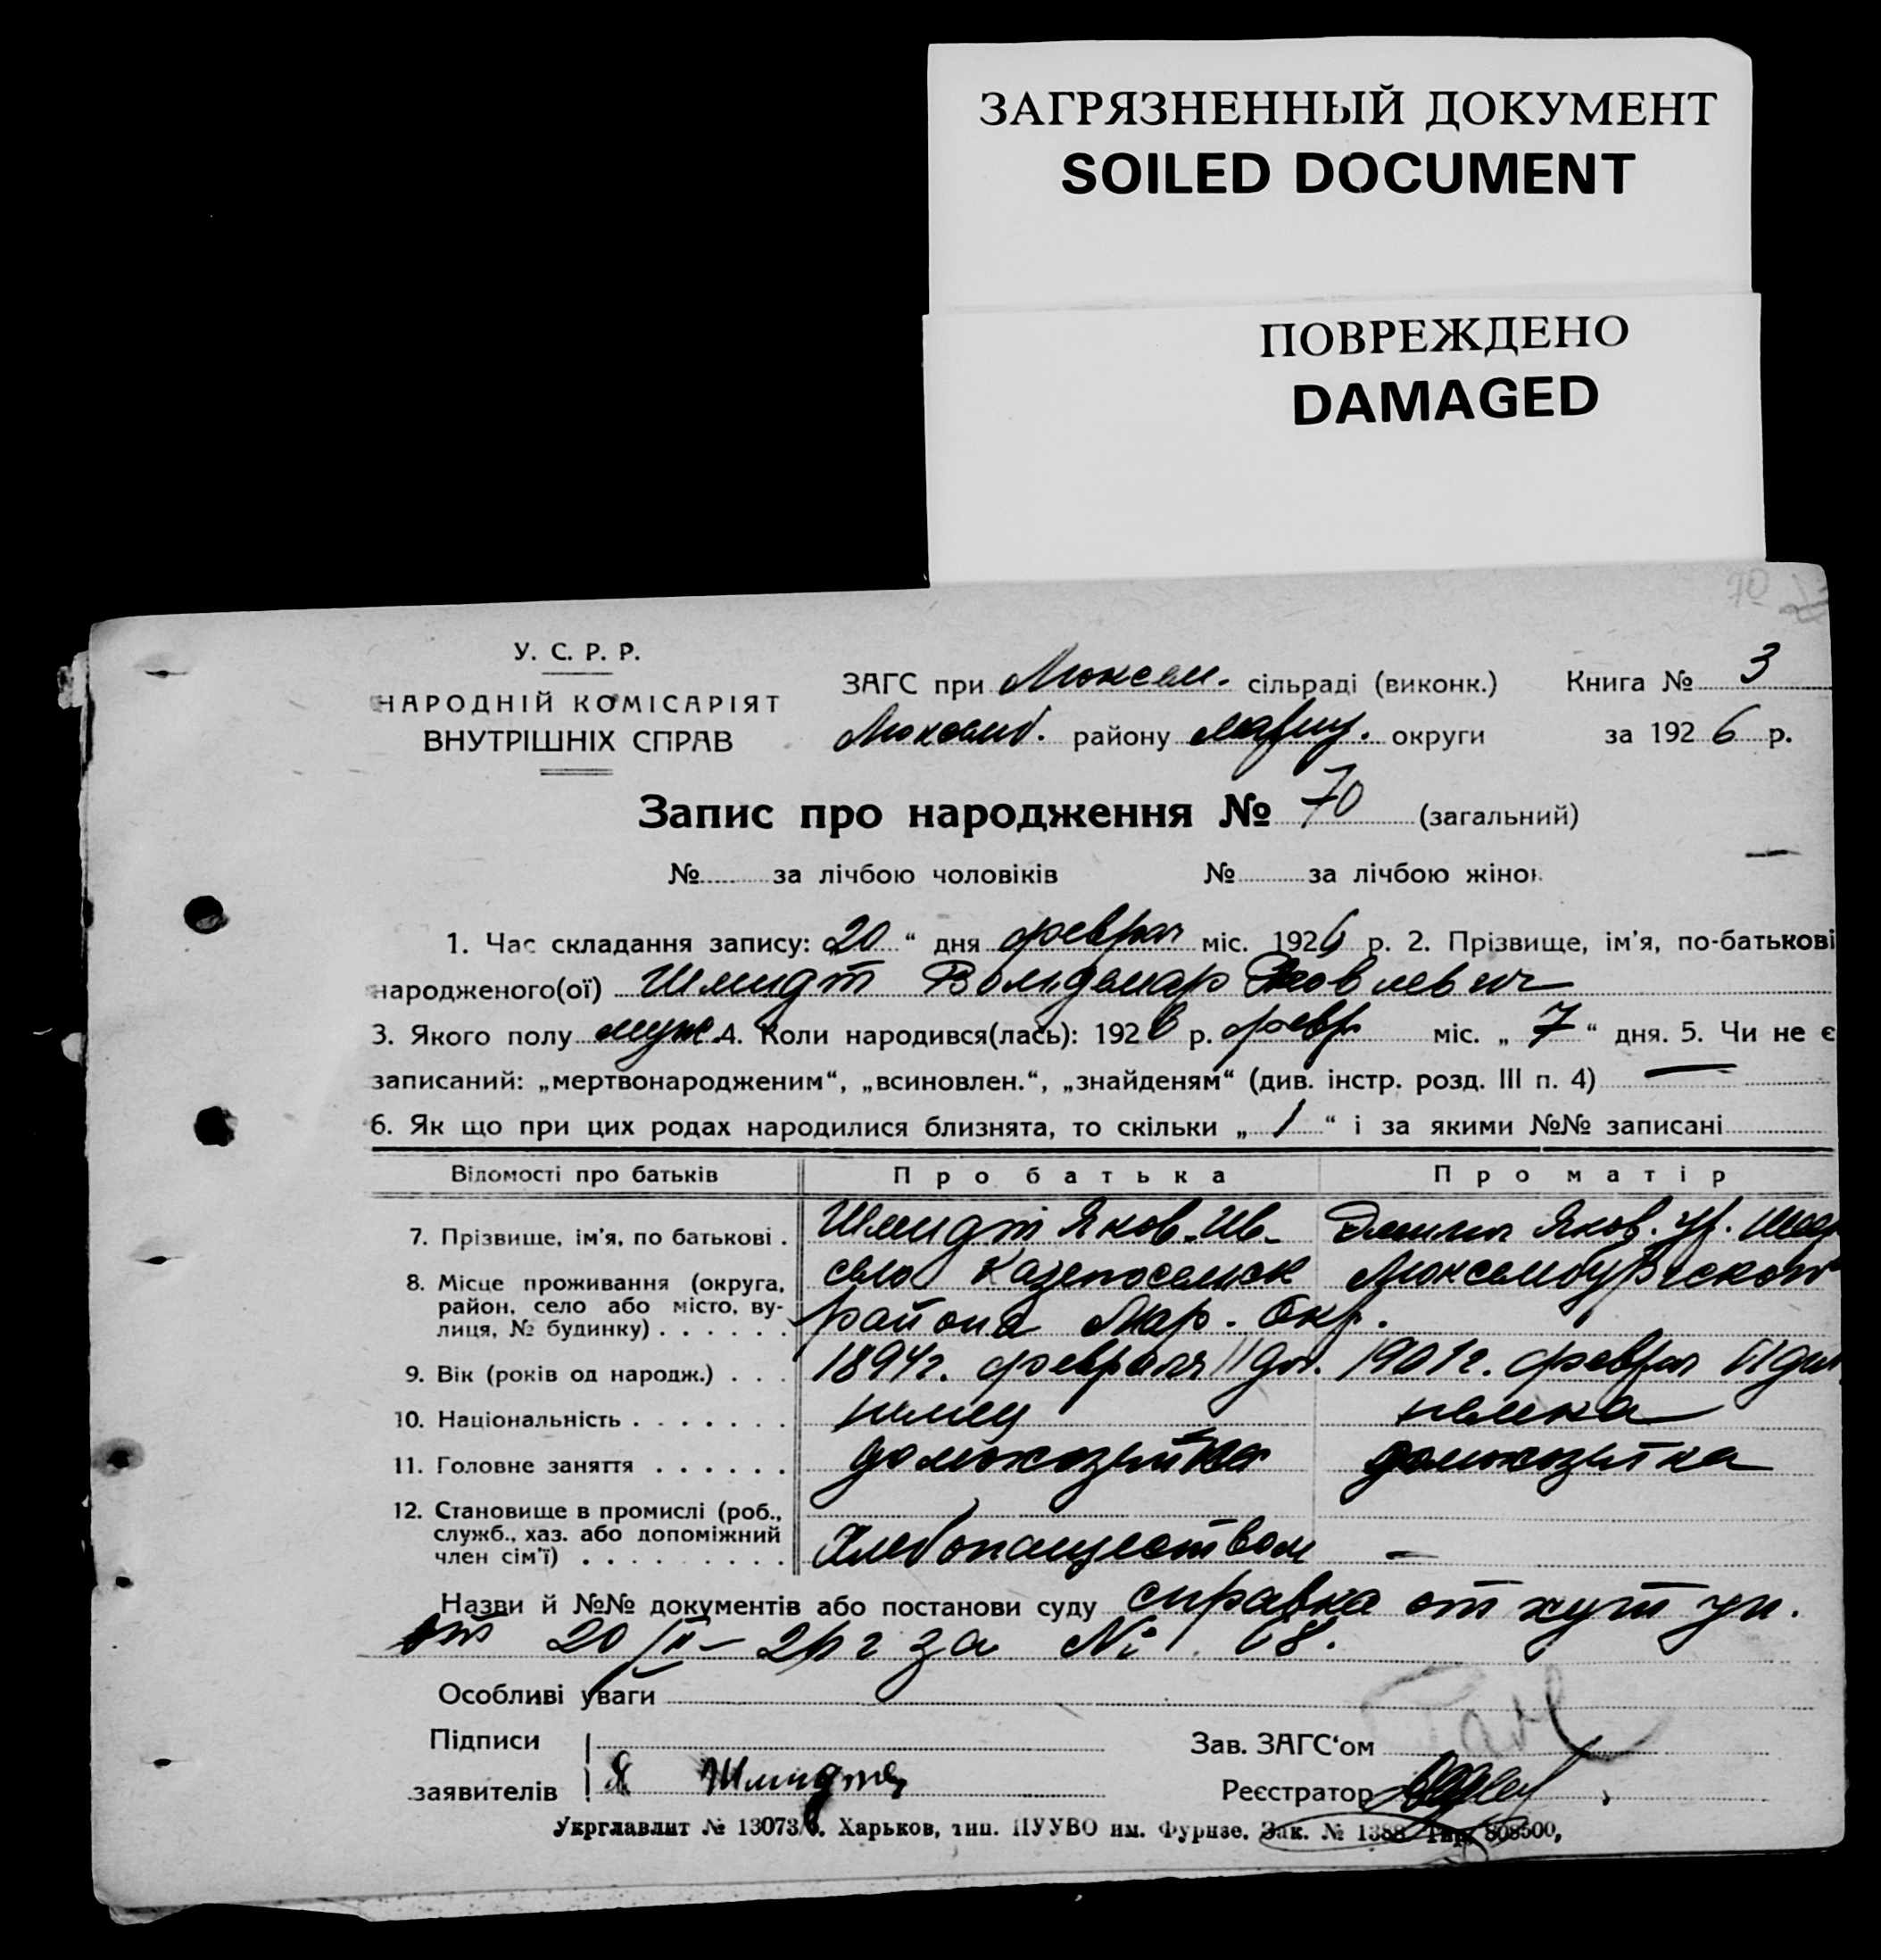 ЗАГРЯЗНЕННЫЙ ДОКУМЕНТ
SOILED DOCUMENT
ПОВРЕЖДЕНО
DAMAGED
70
У. С. Р. Р.
НАРОДНІЙ КОМІСАРІЯТ
ВНУТРІШНІХ СПРАВ
ЗАГС при Люксем. сільраді (виконк.) Книга № 3
Люксемб. району округи за 1926 р.
Запис про народження № 70 (загальний)
№ за лічбою чоловіків № за лічбою жінок
1. Час складання запису: 20 “ дня феврал міс. 1926 р. 2. Прізвище, ім'я, по-батькові
народженого(ої) Шмидт Волдемар Яковлевич
3. Якого полу муж. 4. Коли народився(лась): 1926 р. февр. міс. „ 7 “ дня. 5. Чи не є
записаний: „мертвонародженим“, „всиновлен.“, „знайденям“ (див. інстр. розд. III п. 4) —
6. Як що при цих родах народилися близнята, то скільки „ 1 “ і за якими №№ записані
Відомості про батьків Про батька Про матір
7. Прізвище, ім'я, по батькові . Шмидт Яков. Ив. Яков.
8. Місце проживання (округа, село
район, село або місто, ву-
лиця, № будинку) . . . . . . района Мар. Окр.
9. Вік (років од народж.) . . . 1894 г. февраля 11 дн. 1901 г. феврал
10. Національність . . . . . . . немец немка
11. Головне заняття . . . . . . домохозяйка домохозяйка
12. Становище в промислі (роб.,
служб., хаз. або допоміжний
член сім'ї) . . . . . . . . . Хлебопашеством —
Назви й №№ документів або постанови суду справка от
от 20/II – 26 г за № 68.
Особливі уваги
Підписи Зав. ЗАГС'ом
заявителів Я Шмидт Реєстратор
Укрглавлит № 13073/ Харьков, тип. ПУУВО им. Фрунзе. Зак. № 1388 Тир. 808500,